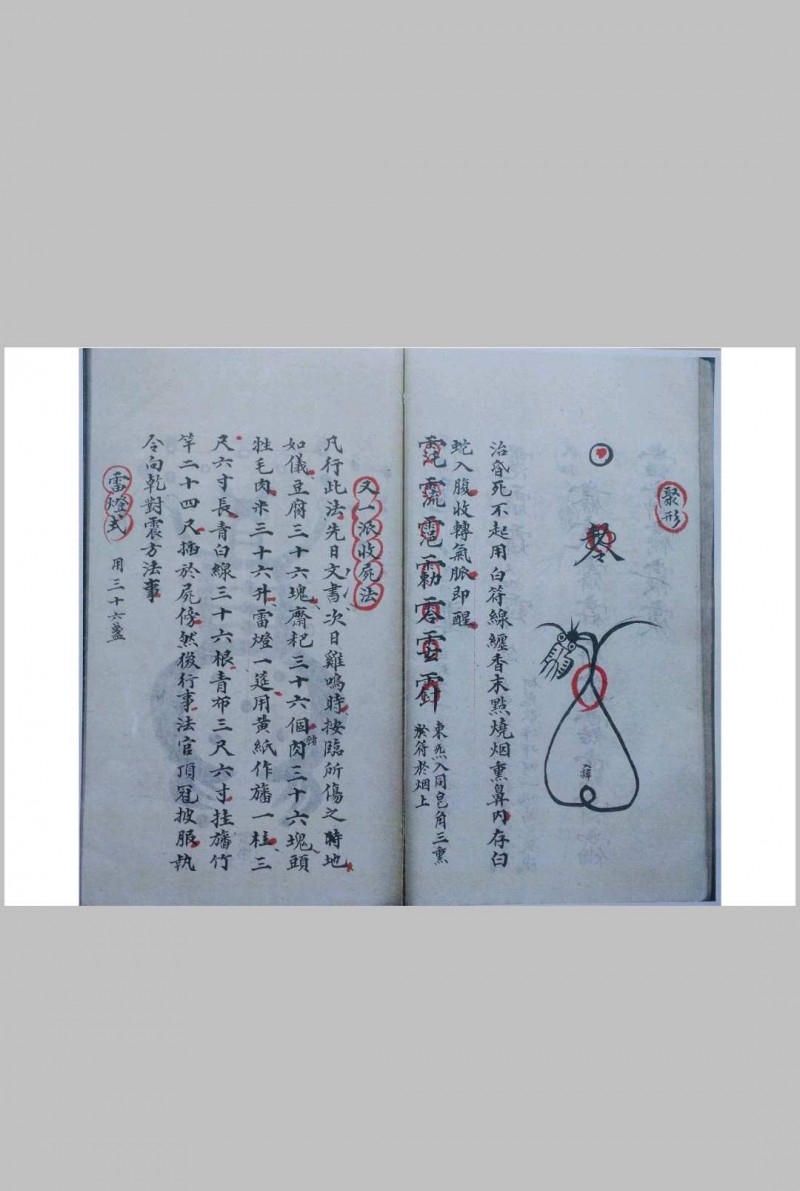 聚形
治昏死不起用白符線纏香末點燒烟熏鼻内存白
蛇入腹收轉氣脈即醒
東炁入同皂角三熏
於符於烟上
又一派收屍法
凡行此法先日文書次日雞鳴時按臨所傷之時地
如儀豆腐三十六塊齋粑三十六個肉三十六塊頭
牲毛肉米三十六升雷燈一筵用黄紙作旛一柱三
尺六寸長青白線三十六根青布三尺六寸挂旛竹
竿二十四尺插於屍傍然後行事法官頂冠披服執
令向乾對震方法事
雷燈式
用三十六盞